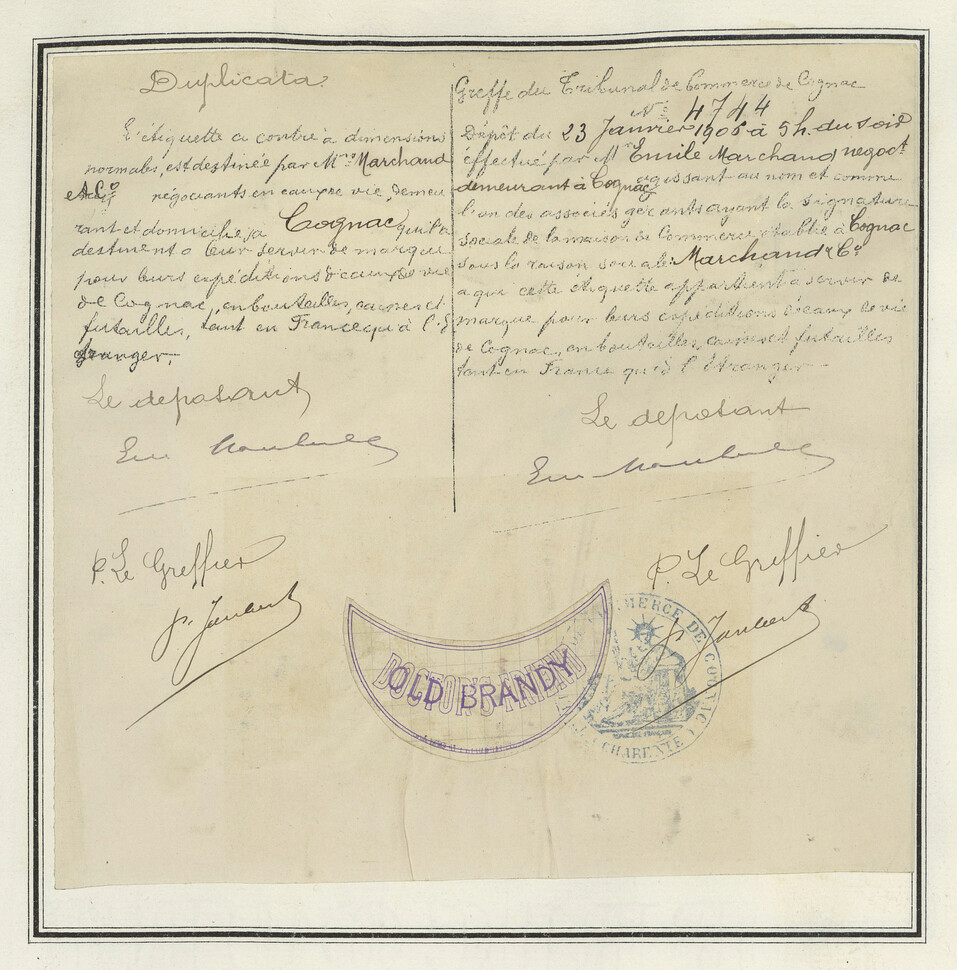 Duplicata
L'étiquette ci contre à dimensions
normales, est destinée par Mrs Marchand
& Co négociants en eaux de vie, demeu
rant et domiciliés à Cognac, qu'ils
destinent à leur servir de marque
pour leurs expéditions d'eaux de vie
de Cognac, en bouteilles, caisses et
futailles, tant en France qu'à l'É
tranger,
Le déposant
P. Le Greffier
P. Jaubert
Greffe du Tribunal de Commerce de Cognac
No 4744
Dépôt du 23 Janvier 1905 à 5 h. du soir
effectué par Mr Emile Marchand négoct
demeurant à Cognac agissant au nom et comme
l'un des associés gérants ayant la signature
sociale de la maison de Commerce établie à Cognac
sous la raison sociale: Marchand & Co
a qui cette étiquette appartient à servir de
marque pour leurs expéditions d'eaux de vie
de Cognac, en bouteilles, caisses et futailles
tant en France qu'à l'étranger
Le déposant
P. Le Greffier
P. Jaubert
DOCTOR'S FRIEND
OLD BRANDY
COMMERCE DE COGNAC
(CHARENTE)